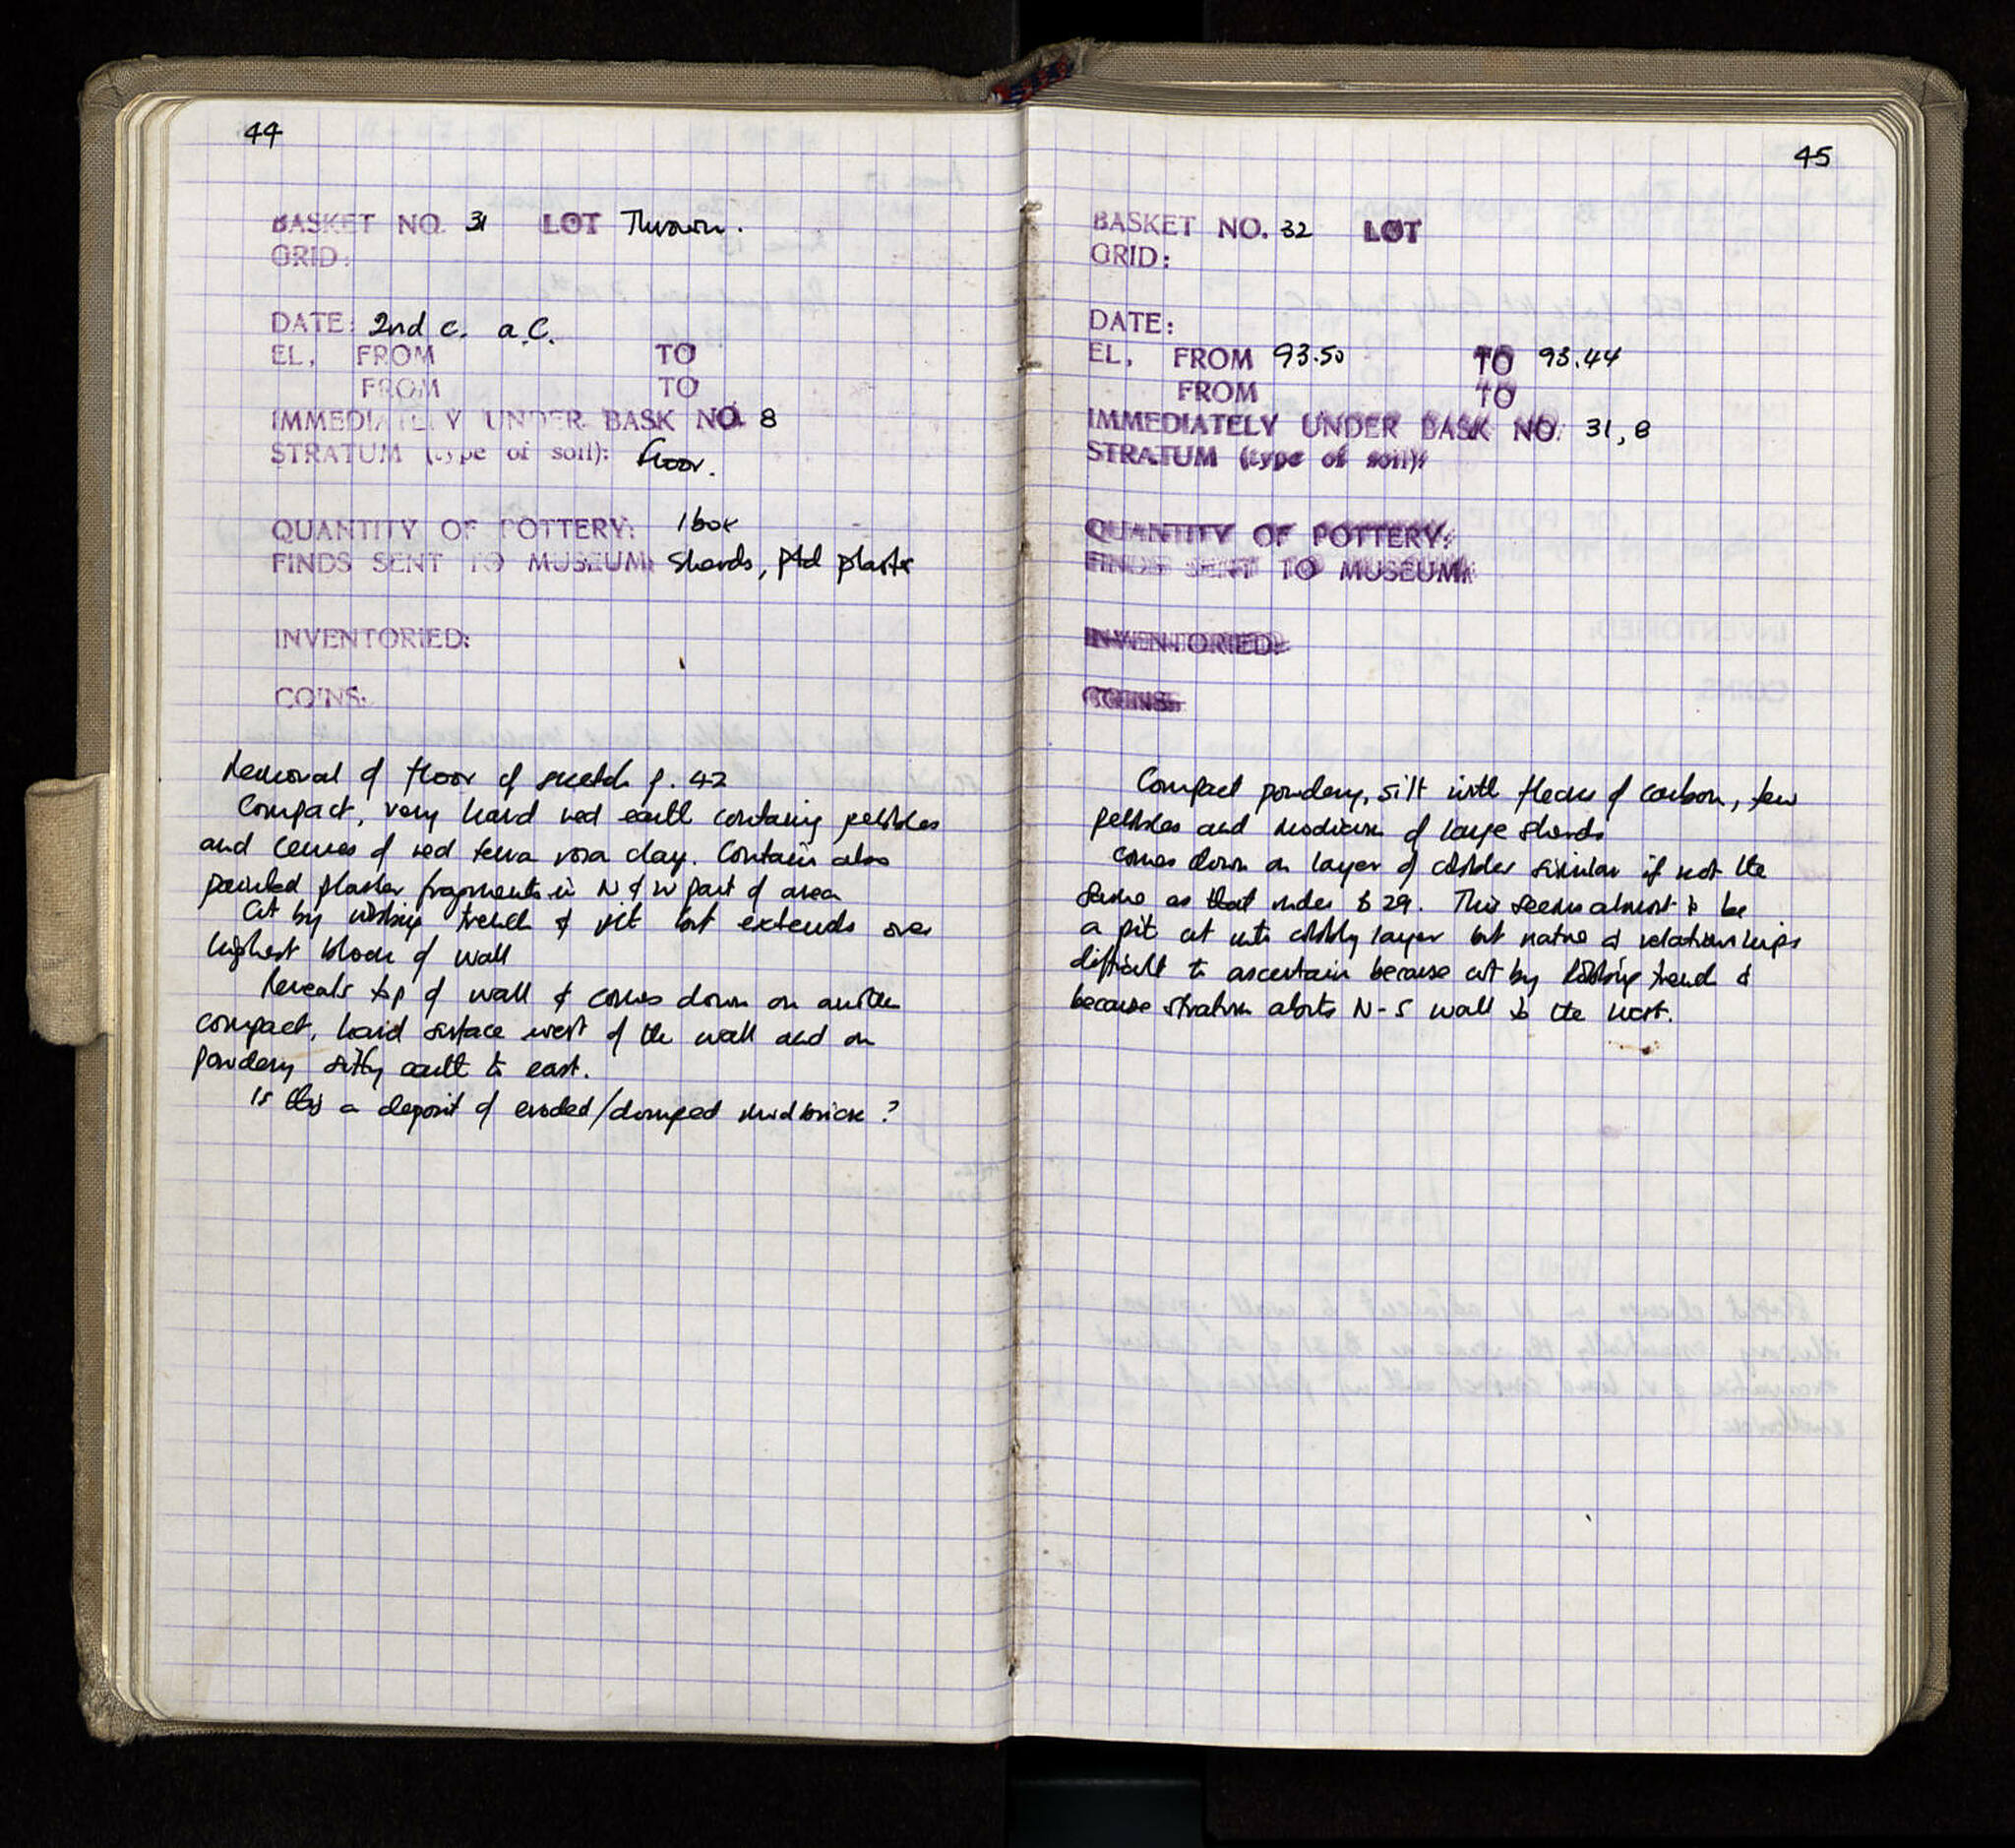 44
BASKET NO. 31 LOT Thrown.
GRID:
DATE: 2nd c. a.C.
EL, FROM TO
FROM TO
IMMEDIATELY UNDER BASK NO. 8
STRATUM (type of soil): floor.
QUANTITY OF POTTERY: 1 box
FINDS SENT TO MUSEUM: Sherds, ptd plaster
INVENTORIED:
COINS:
Removal of floor cf sketch p. 42
Compact, very hard red earth containing pebbles
and lenses of red terra rosa clay. Contain also
painted plaster fragments in N & W part of area
Cut by robbing trench & pit but extends over
highest block of wall
Reveals top of wall & comes down on another
compact, hard surface west of the wall and on
powdery silty earth to east.
Is this a deposit of eroded/dumped mudbrick?
45
BASKET NO. 32 LOT
GRID:
DATE:
EL, FROM 93.50 TO 93.44
FROM TO
IMMEDIATELY UNDER BASK NO. 31, 8
STRATUM (type of soil):
QUANTITY OF POTTERY:
FINDS SENT TO MUSEUM:
INVENTORIED:
COINS:
Compact powdery, silt with flecks of carbon, few
pebbles and modicum of large sherds
comes down on layer of cobbles similar if not the
same as that under B 29. This seems almost to be
a pit cut into cobbly layer but nature & relationships
difficult to ascertain because cut by robbing trench &
because stratum abuts N-S wall to the west.